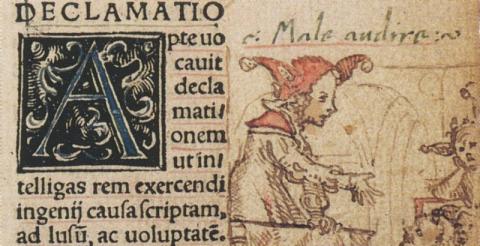 DECLAMATIO
Apte uo
cauit
decla
mati⸗
onem
ut in⸗
telligas rem exercendi
ingenij causa scriptam,
ad lusũ, ac uoluptatẽ.
Male audire